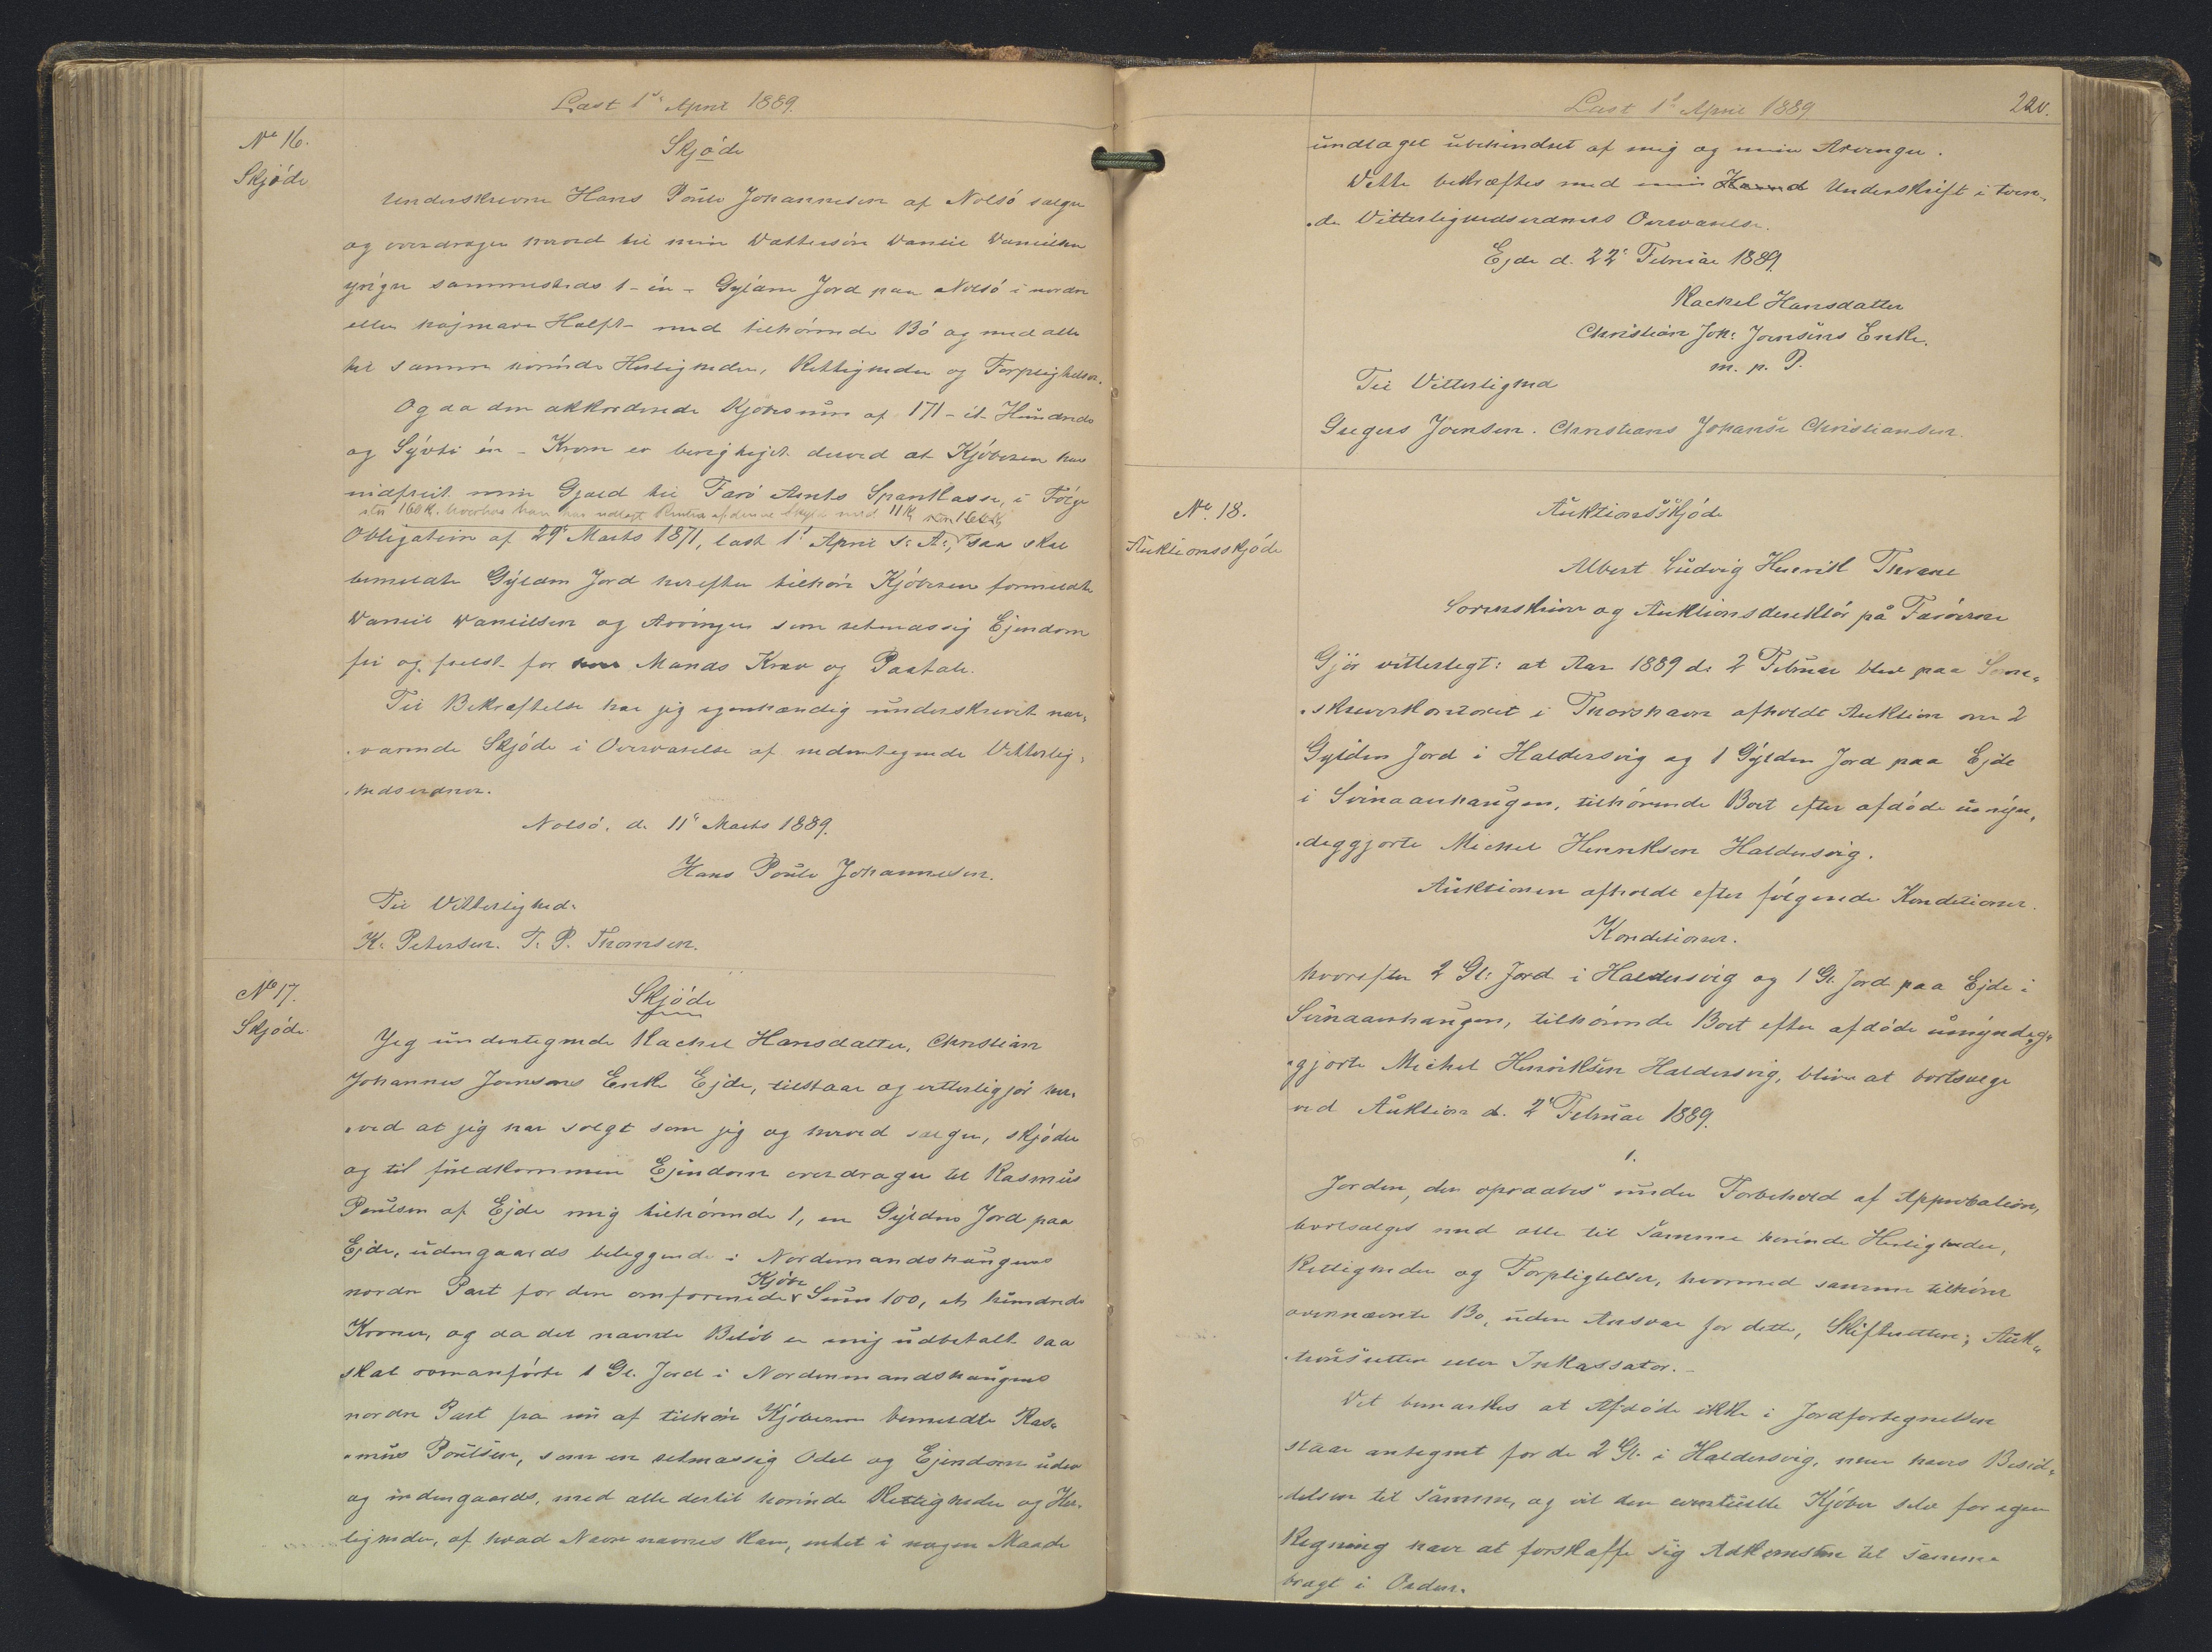 Læst 1ste April 1889.
No 16.
Skjøde
Skjøde
Underskrevne Hans Poule Johannesen af Nolsø sælger
og overdrager herved til min Dattersøn Daniel Danielsen
yngre sammesteds 1 - én - Gylden Jord paa Nolsø i nordre
eller højmare Halft - med tilhørende Bø og med alle
til samme hørende Herligheder, Rettigheder og Forpligtelser.
Og da den akkorderede Kjøbesum af 171 - et Hundrede
og Syvti én - Kroner er berigtiget derved at Kjøberen har
indfriet min Gjæld til Færø Amts Sparekasse, i Følge
stor 160 K. hvorhos han har udlagt Renter af denne Skyld med 11 K
Obligation af 29de Marts 1871, læst 1ste April s. A., saa skal
bemeldte Gylden Jord herefter tilhøre Kjøberen formeldte
Daniel Danielsen og Arvinger som retmæssig Ejendom
fri og frelst for hver Mands Krav og Paatale.
Til Bekræftelse har jeg egenhændig underskrevet nær-
værende Skjøde i Overværelse af medundertegnede Vitterlig-
hedsvidner.
Nolsø, d. 11te Marts 1889.
Hans Poule Johannesen.
Til Vitterlighed:
K. Petersen. T. P. Thomsen.
No 17.
Skjøde
Skjøde
Jeg undertegnede Rachel Hansdatter, Christian
Johannes Joensens Enke Ejde, tilstaar og vitterliggjør her-
ved at jeg har solgt som jeg og herved sælger, skjøder
og til fuldkommen Ejendom overdrager til Rasmus
Poulsen af Ejde mig tilhørende 1, en Gylden Jord paa
Ejde, udengaards beliggende i Nordemandshaugens
nordre Part for den omforenede Kjøbe Sum 100, et hundrede
Kroner, og da det nævnte Beløb er mig udbetalt saa
skal ovenanførte 1 Gl. Jord i Nordenmandshaugens
nordre Part fra nu af tilhøre Kjøberen bemeldte Ras-
mus Poulsen, som en retmæssig Odel og Ejendom uden
og indengaards, med alle dertil hørende Rettigheder og Her-
ligheder, af hvad Navn nævnes kan, intet i nogen Maade
Læst 1ste April 1889
220.
undtaget ubehindret af mig og mine Arvinger.
Dette bekræftes med min Haand Underskrift i tven-
de Vitterlighedsvidners Overværelse.
Ejde d. 22de Februar 1889.
Rachel Hansdatter
Christian Joh. Joensens Enke.
m. p. P.
Til Vitterlighed
Gregers Joensen. Christians Johanse Christiansen.
No. 18.
Auktionsskjøde
Auktionsskjøde
Albert Ludvig Henrik Thrane
Sorenskriver og Auktionsdirektør på Færøerne
Gjør vitterlegt: at Aar 1889 d. 2 Februar blev paa Soren-
skriverkontoret i Thorshavn afholdt Auktion over 2
Gylden Jord i Haldersvig og 1 Gylden Jord paa Ejde
i Svinaahaugen, tilhørende Boet efter afdøde umyn-
diggjorte Michel Henriksen Haldersvig.
Auktionen afholdt efter følgende Konditioner.
Konditioner.
hvorefter 2 Gl: Jord i Haldersvig og 1 Gl. Jord paa Ejde i
Svinaahaugen, tilhørende Boet efter afdøde umyndig-
gjorte Michel Henriksen Haldersvig, bliver at bortsælge
ved Auktion d. 2de Februar 1889.
1.
Jorden, der opraabes under Forbehold af Approbation,
bortsælges med alle til samme hørende Herligheder,
Rettigheder og Forpligtelser, hvormed samme tilhører
ovennævnte Bo, uden Ansvar for dette, Skifteretten, Auk-
tionsretten eller Inkassator.-
Det bemærkes at Afdøde ikke i Jordfortegnelsen
staar antegnet for de 2 Gl. i Haldersvig, men hans Besid-
delse til samme, og vil den eventuelle Kjøber selv for egen
Regning have at forskaffe sig Adkomsten til samme
bragt i Orden.